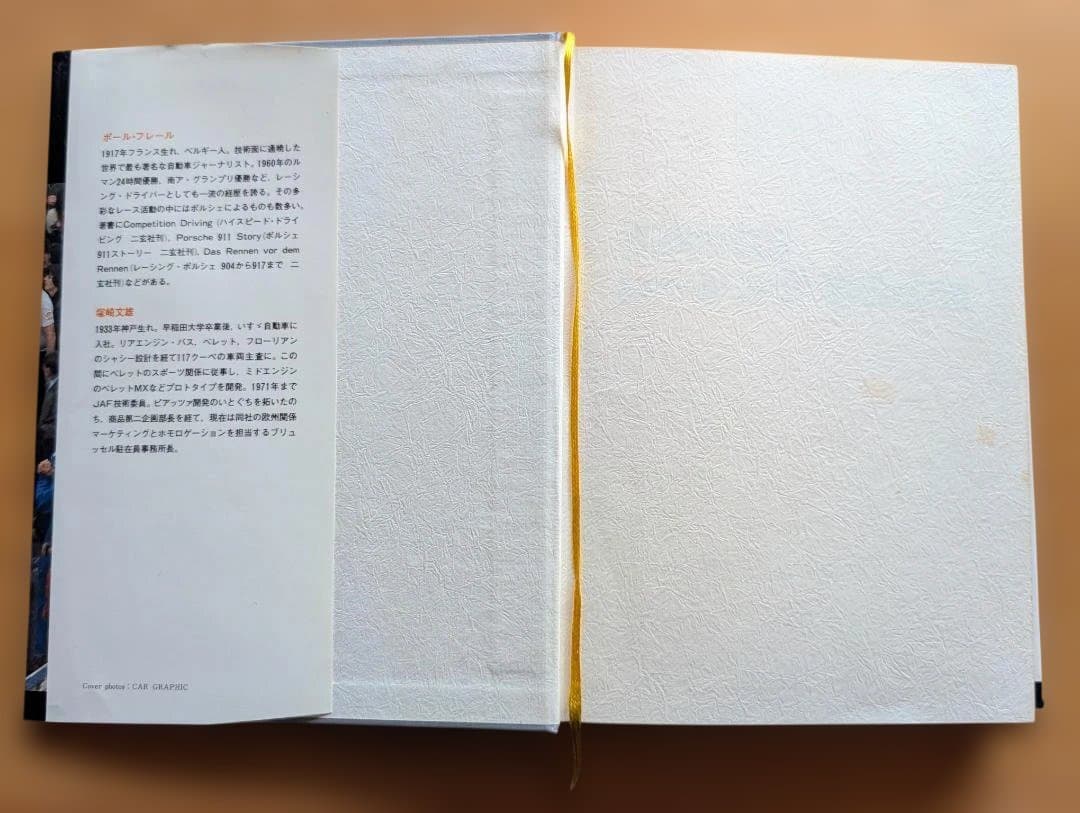 ポール・フレール
1917年フランス生れ、ベルギー人。技術面に通暁した
世界で最も著名な自動車ジャーナリスト。1960年のル
マン24時間優勝、南ア・グランプリ優勝など、レーシ
ング・ドライバーとしても一流の経歴を誇る。その多
彩なレース活動の中にはポルシェによるものも数多い。
著書にCompetition Driving (ハイスピード・ドライ
ビング 二玄社刊)、Porsche 911 Story(ポルシェ
911ストーリー 二玄社刊)、Das Rennen vor dem
Rennen(レーシング・ポルシェ 904から917まで 二
玄社刊)などがある。
塚崎文雄
1933年神戸生れ。早稲田大学卒業後、いすゞ自動車に
入社。リアエンジン・バス、ベレット、フローリアン
のシャシー設計を経て117クーペの車両主査に。この
間にベレットのスポーツ関係に従事し、ミドエンジン
のベレットMXなどプロトタイプを開発。1971年まで
JAF技術委員。ピアッツァ開発のいとぐちを拓いたの
ち、商品第二企画部長を経て、現在は同社の欧州関係
マーケティングとホモロゲーションを担当するブリュ
ッセル駐在員事務所長。
Cover photos：CAR GRAPHIC